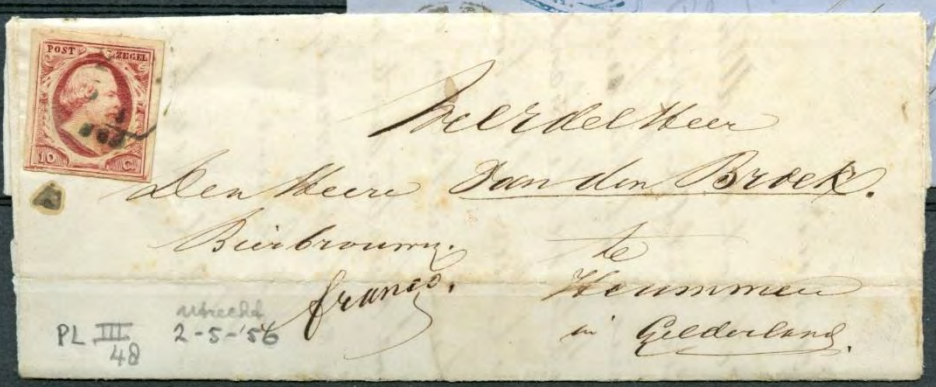 POST ZEGEL
10 C.
WelEdelHeer
Den Heere Van den Broek.
Bierbrouwer.
te
franco.
Heummen
in Gelderland.
PL III
48
Utrecht
2-5-'56